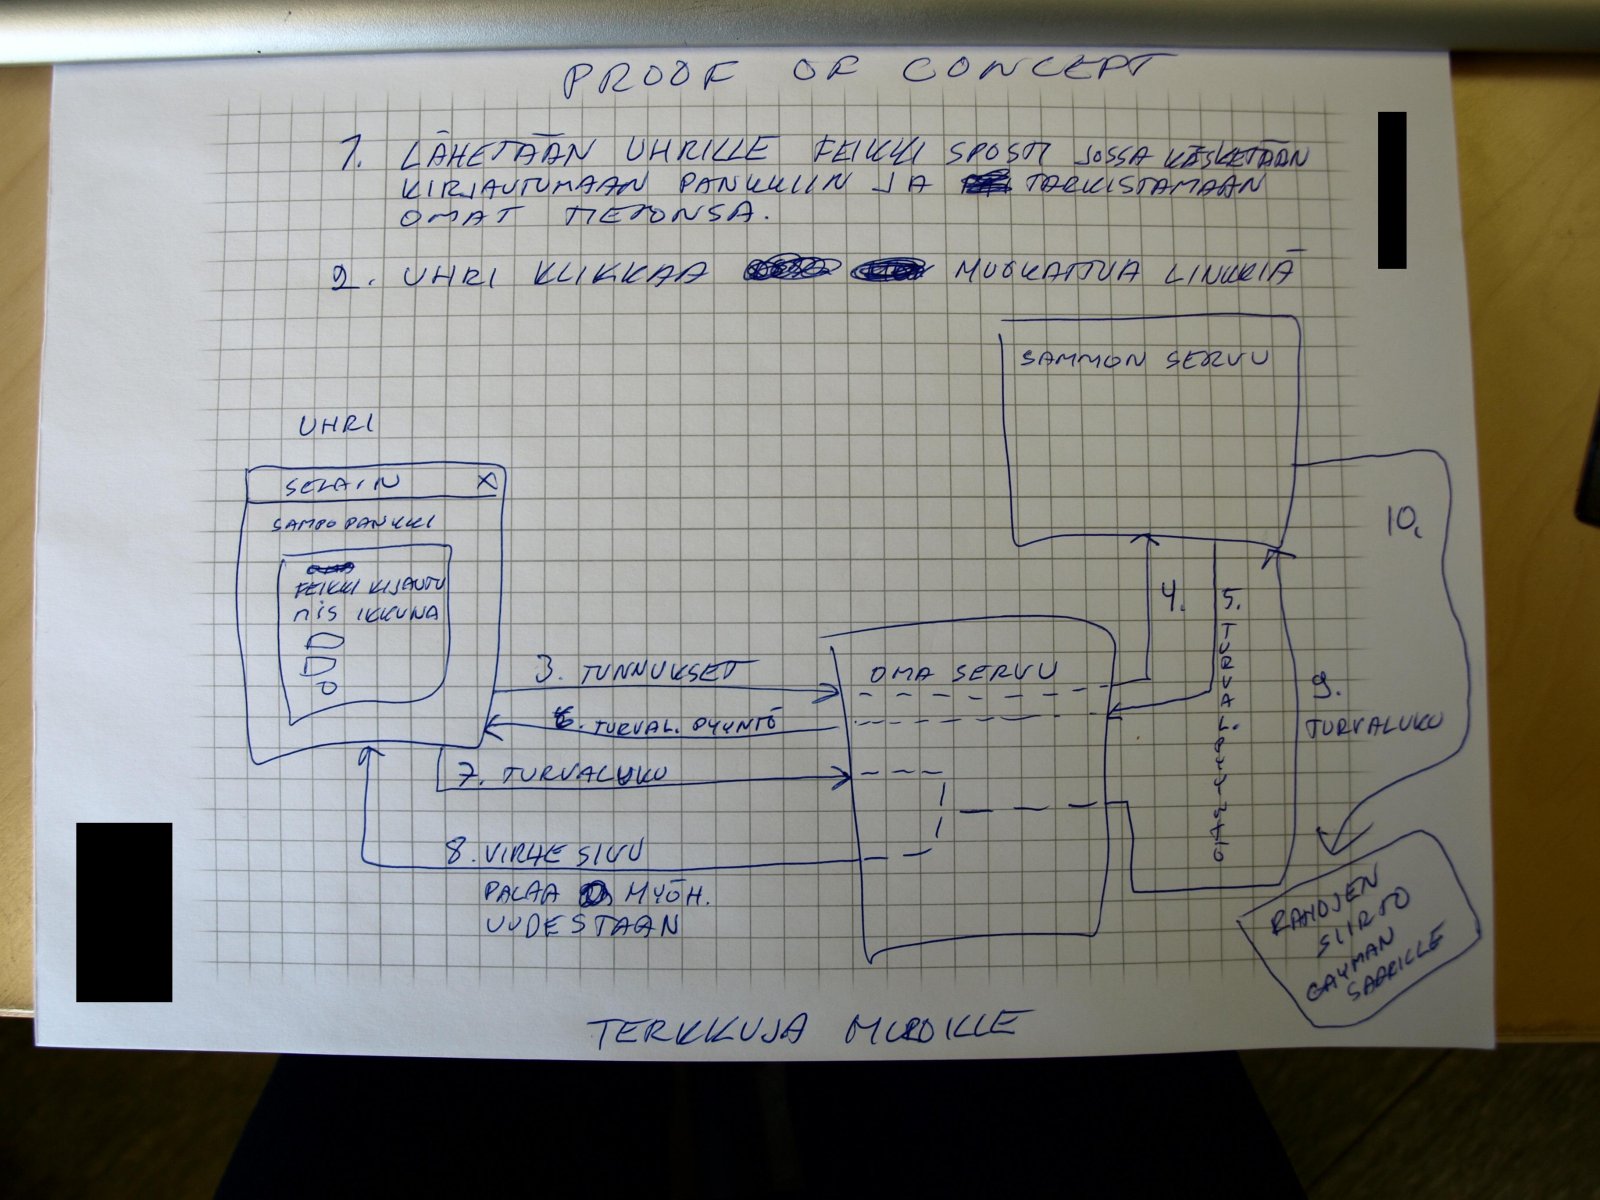 PROOF OF CONCEPT
1. LÄHETÄÄN UHRILLE FEIKKI SPOSTI JOSSA KÄSKETÄÄN
KIRJAUTUMAAN PANKKIIN JA TARKISTAMAAN
OMAT TIETONSA.
2. UHRI KLIKKAA MUOKATTUA LINKKIÄ
SAMMON SERVU
UHRI
SELAIN X
SAMPO PANKKI
FEIKKI KIJAUTU
MIS IKKUNA
10.
4.
5. TURVAL. PYYNTÖ
3. TUNNUKSET
OMA SERVU
6. TURVAL. PYYNTÖ
9.
TURVALUKU
7. TURVALUKU
8. VIRHE SIVU
PALAA MYÖH.
UUDESTAAN
RAHOJEN
SIIRTO
CAYMAN
SAARILLE
TERKKUJA